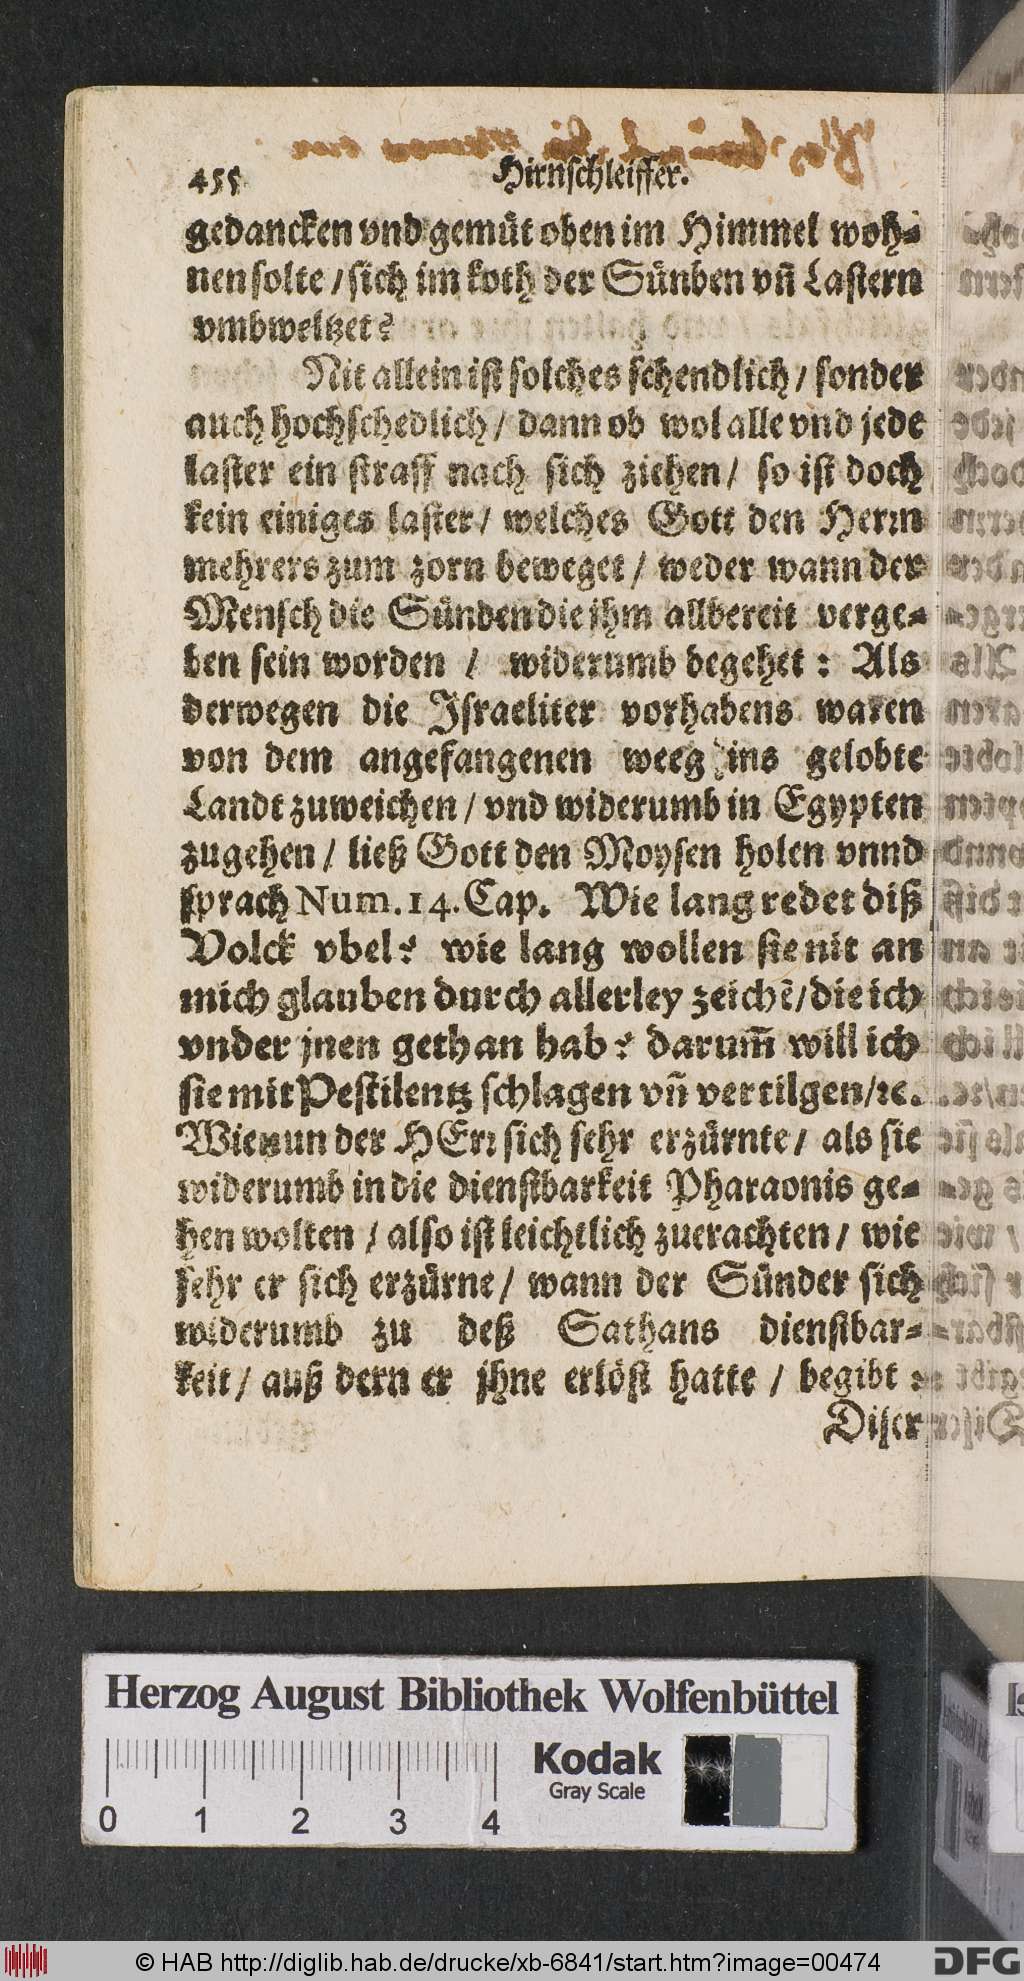 455 Hirnschleiffer.
gedancken vnd gemüt oben im Himmel woh-
nen solte / sich im koth der Sünben vñ Lastern
vmbweltzet?
Nit allein ist solches schendlich / sonder
auch hochschedlich / dann ob wol alle vnd jede
laster ein straff nach sich ziehen / so ist doch
kein einiges laster / welches Gott den Herꝛn
mehrers zum zorn beweget / weder wann der
Mensch die Sünden die jhm allbereit verge-
ben sein worden / widerumb begehet : Als
derwegen die Israeliter vorhabens waren
von dem angefangenen weeg ins gelobte
Landt zuweichen / vnd widerumb in Egypten
zugehen / ließ Gott den Moysen holen vnnd
sprach Num. 14. Cap. Wie lang redet diß
Volck vbel? wie lang wollen sie nit an
mich glauben durch allerley zeichẽ / die ich
vnder jnen gethan hab? darum̃ will ich
sie mit Pestilentz schlagen vñ vertilgen / ꝛc.
Wie nun der HErꝛ sich sehr erzürnte / als sie
widerumb in die dienstbarkeit Pharaonis ge-
hen wolten / also ist leichtlich zuerachten / wie
sehr er sich erzürne / wann der Sünder sich
widerumb zu deß Sathans dienstbar-
keit / auß dern er jhne erlöst hatte / begibt :
Diser
Herzog August Bibliothek Wolfenbüttel
Kodak
Gray Scale
0 1 2 3 4
© HAB http://diglib.hab.de/drucke/xb-6841/start.htm?image=00474
DFG